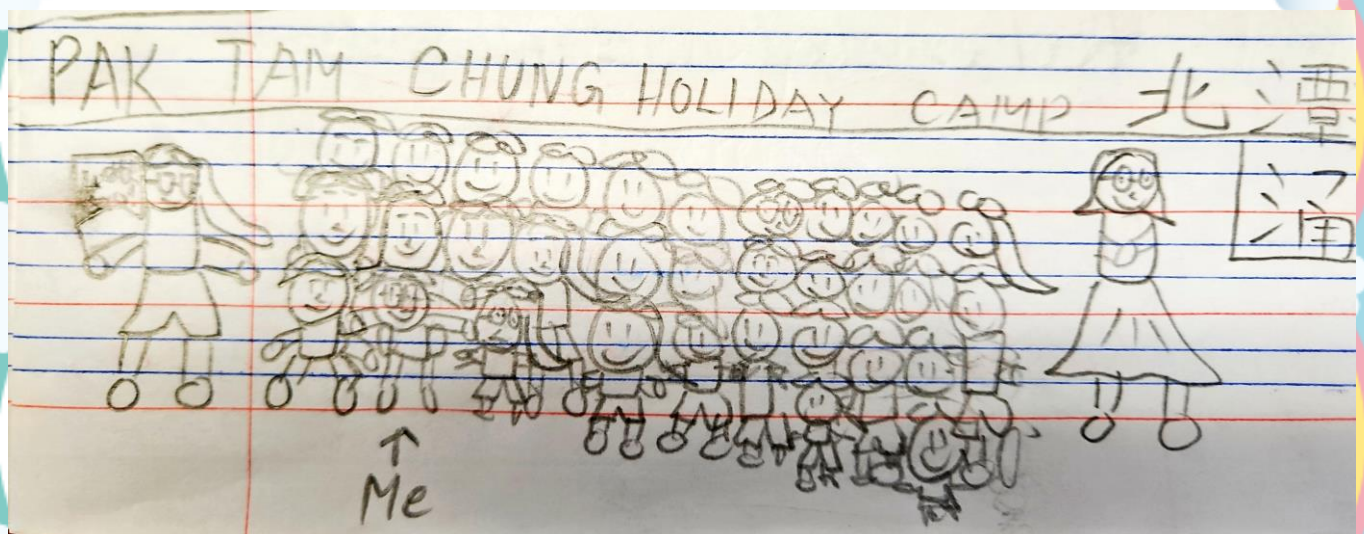 PAK TAM CHUNG HOLIDAY CAMP 北潭
涌
Me